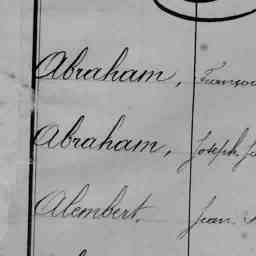 Abraham, Franço
Abraham, Joseph, J
Alembert, Jean